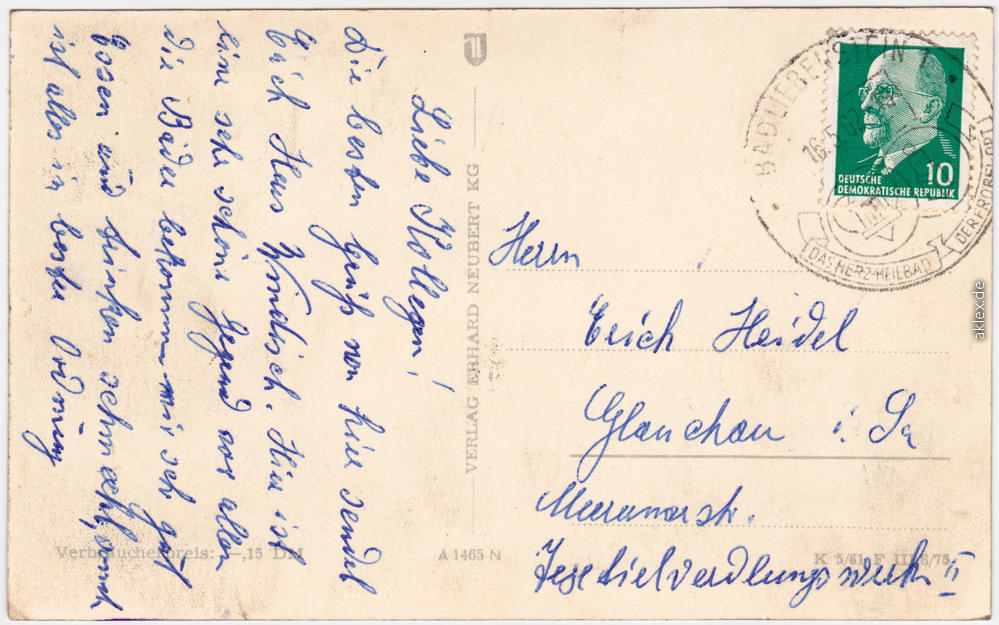 Liebe Kolegen!
Die besten Grüß von hier sendet
Euch Hans Windisch. Hier ist
eine sehr schöne Gegend vor allem
die Bäder bekommen mir sehr gut
Essen und trinken schmeckt, sonst
ist alles in bester Ordnung
VERLAG ERHARD NEUBERT KG
BAD LIEBENSTEIN 1
16.5.62
DAS HERZ-HEILBAD
DER FRÖBELORT
10
DEUTSCHE
DEMOKRATISCHE REPUBLIK
Herrn
Erich Heidel
Glauchau i. Sa
Meeranerstr.
Textielveredlungswerk II
Verbraucherpreis: -,15 DM
A 1465 N
K 5/61
aklex.de